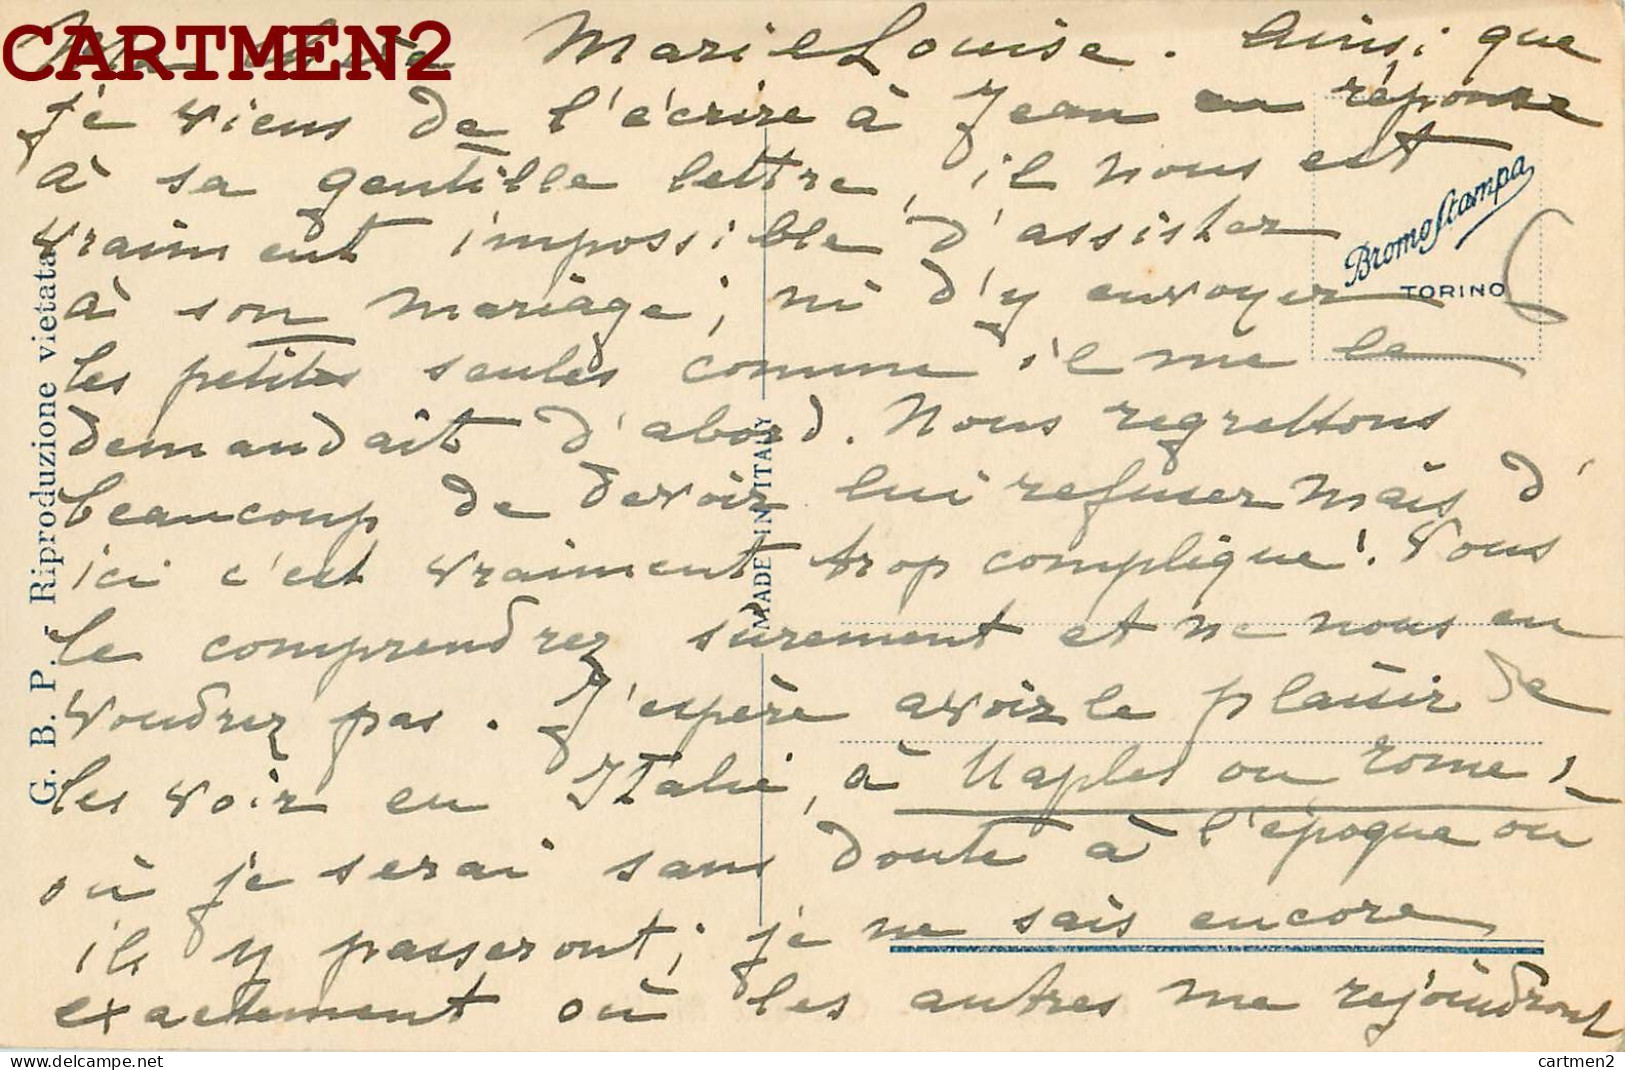 CARTMEN2
Marie Louise. Ainsi que
je viens de l'écrire à Jean en réponse
à sa gentille lettre, il nous est
vraiment impossible d'assister
à son mariage, ni d'y envoyer
les petites seules comme il me le
demandait d'abord. Nous regrettons
beaucoup de devoir lui refuser mais d'
ici c'est vraiment trop compliqué! Vous
le comprendrez sûrement et ne nous en
voudrez pas. J'espère avoir le plaisir de
les voir en Italie, à Naples ou Rome,
où je serai sans doute à l'époque ou
ils y passeront; je ne sais encore
exactement où les autres me rejoindront
Bromostampa
TORINO
MADE IN ITALY
G. B. P. - Riproduzione vietata
cartmen2.com
cartmen2